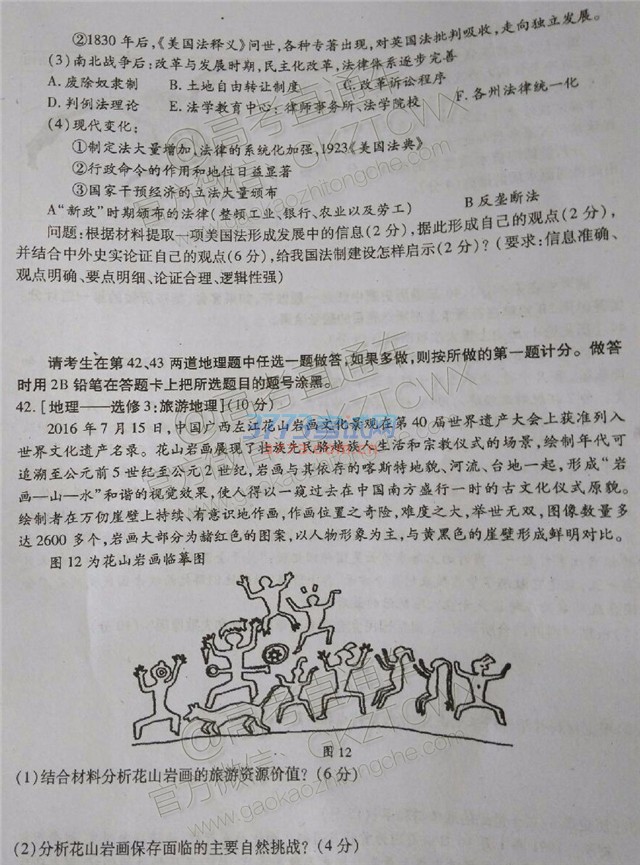 ②1830 年后,《美国法释义》问世,各种专著出现,对英国法批判吸收,走向独立发展。
(3)南北战争后:改革与发展时期,民主化改革,法律体系逐步完善
A. 废除奴隶制 B. 土地自由转让制度 C. 改革诉讼程序
D. 判例法理论 E. 法学教育中心:律师事务所、法学院校 F. 各州法律统一化
(4)现代变化:
①制定法大量增加,法律的系统化加强,1923《美国法典》
②行政命令的作用和地位日益显著
③国家干预经济的立法大量颁布
A“新政”时期颁布的法律(整顿工业、银行、农业以及劳工) B 反垄断法
问题:根据材料提取一项美国法形成发展中的信息(2 分),据此形成自己的观点(2 分),
并结合中外史实论证自己的观点(6 分),给我国法制建设怎样启示(2 分)?(要求:信息准确、
观点明确、要点明细、论证合理、逻辑性强)
请考生在第 42、43 两道地理题中任选一题做答,如果多做,则按所做的第一题计分。做答
时用 2B 铅笔在答题卡上把所选题目的题号涂黑。
42. [地理——选修 3:旅游地理](10 分)
2016 年 7 月 15 日,中国广西左江花山岩画文化景观在第 40 届世界遗产大会上获准列入
世界文化遗产名录。花山岩画展现了壮族先民骆越族人生活和宗教仪式的场景,绘制年代可
追溯至公元前 5 世纪至公元 2 世纪,岩画与其依存的喀斯特地貌、河流、台地一起,形成“岩
画—山—水”和谐的视觉效果,使人得以一窥过去在中国南方盛行一时的古文化仪式原貌。
绘制者在万仞崖壁上持续、有意识地作画,作画位置之奇险,难度之大,举世无双,图像数量多
达 2600 多个,岩画大部分为赭红色的图案,以人物形象为主,与黄黑色的崖壁形成鲜明对比。
图 12 为花山岩画临摹图
图 12
(1)结合材料分析花山岩画的旅游资源价值?(6 分)
(2)分析花山岩画保存面临的主要自然挑战?(4 分)
@高考直通车
官方微信:GKZTCWX
www.gaokaozhitongche.com